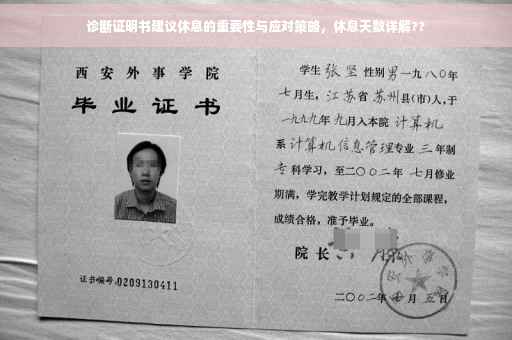 诊断证明书建议休息的重要性与应对策略，休息天数详解??
西安外事学院
毕业证书
证书编号:0209130411
学生 张坚 性别 男 一九八〇年
七月生，江苏省 苏州县(市)人,于
一九九九年 九月入本院 计算机
系 计算机信息管理专业 三 年制
专 科学习，至二〇〇二年 七月修业
期满，学完教学计划规定的全部课程，
成绩合格，准予毕业。
院长
二〇〇二年 七 月 五 日